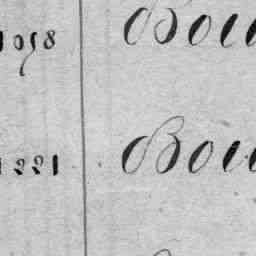 1058 Bou
1221 Bou